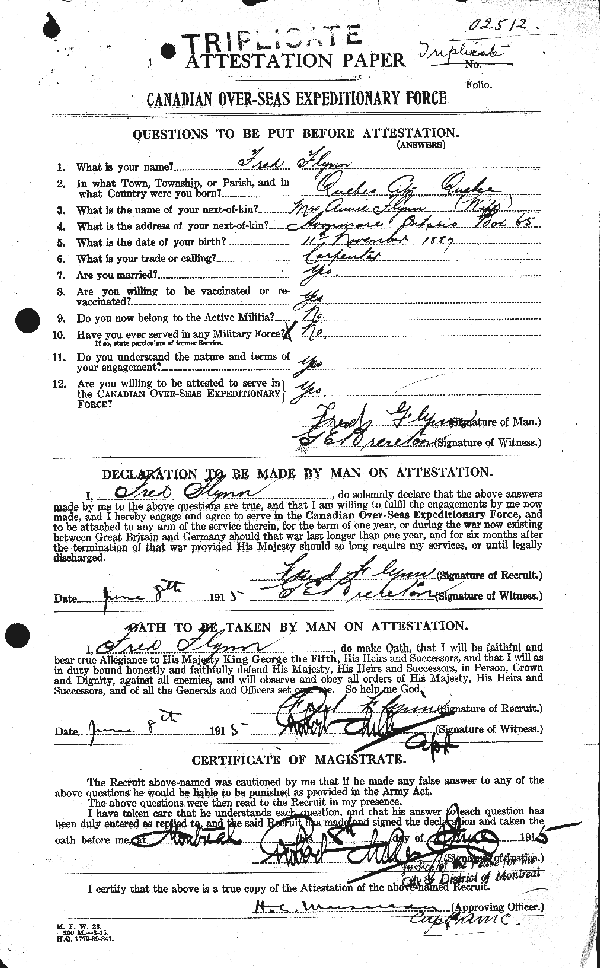 02512
TRIPLICATE
Triplicate
ATTESTATION PAPER
No.
Folio.
CANADIAN OVER-SEAS EXPEDITIONARY FORCE
QUESTIONS TO BE PUT BEFORE ATTESTATION.
(ANSWERS)
1. What is your name? Fred Flynn
2. In what Town, Township, or Parish, and in
what Country were you born? Quebec City Quebec
3. What is the name of your next-of-kin? Mrs Annie Flynn (Wife)
4. What is the address of your next-of-kin? Ontario Box 65
5. What is the date of your birth? 11th November 1887
6. What is your trade or calling? Carpenter
7. Are you married? Yes
8. Are you willing to be vaccinated or re-
vaccinated? Yes
9. Do you now belong to the Active Militia? No
10. Have you ever served in any Military Force? No
If so, state particulars of former Service.
11. Do you understand the nature and terms of
your engagement? Yes
12. Are you willing to be attested to serve in
the CANADIAN OVER-SEAS EXPEDITIONARY
FORCE? Yes
Fred Flynn (Signature of Man.)
G E Brereton (Signature of Witness.)
DECLARATION TO BE MADE BY MAN ON ATTESTATION.
I, Fred Flynn, do solemnly declare that the above answers
made by me to the above questions are true, and that I am willing to fulfil the engagements by me now
made, and I hereby engage and agree to serve in the Canadian Over-Seas Expeditionary Force, and
to be attached to any arm of the service therein, for the term of one year, or during the war now existing
between Great Britain and Germany should that war last longer than one year, and for six months after
the termination of that war provided His Majesty should so long require my services, or until legally
discharged.
Fred Flynn (Signature of Recruit.)
Date June 8th 1915 G E Brereton (Signature of Witness.)
OATH TO BE TAKEN BY MAN ON ATTESTATION.
I, Fred Flynn, do make Oath, that I will be faithful and
bear true Allegiance to His Majesty King George the Fifth, His Heirs and Successors, and that I will as
in duty bound honestly and faithfully defend His Majesty, His Heirs and Successors, in Person, Crown
and Dignity, against all enemies, and will observe and obey all orders of His Majesty, His Heirs and
Successors, and of all the Generals and Officers set over me. So help me God.
Fred Flynn (Signature of Recruit.)
Date June 8th 1915 Robert (Signature of Witness.)
CERTIFICATE OF MAGISTRATE.
The Recruit above-named was cautioned by me that if he made any false answer to any of the
above questions he would be liable to be punished as provided in the Army Act.
The above questions were then read to the Recruit in my presence.
I have taken care that he understands each question, and that his answer to each question has
been duly entered as replied to, and the said Recruit has made and signed the declaration and taken the
oath before me, at Montreal this 8th day of June 1915
Robert (Signature of Justice.)
District of Montreal
I certify that the above is a true copy of the Attestation of the above-named Recruit.
(Approving Officer.)
M. F. W. 23.
H.Q. 1772-39-241.